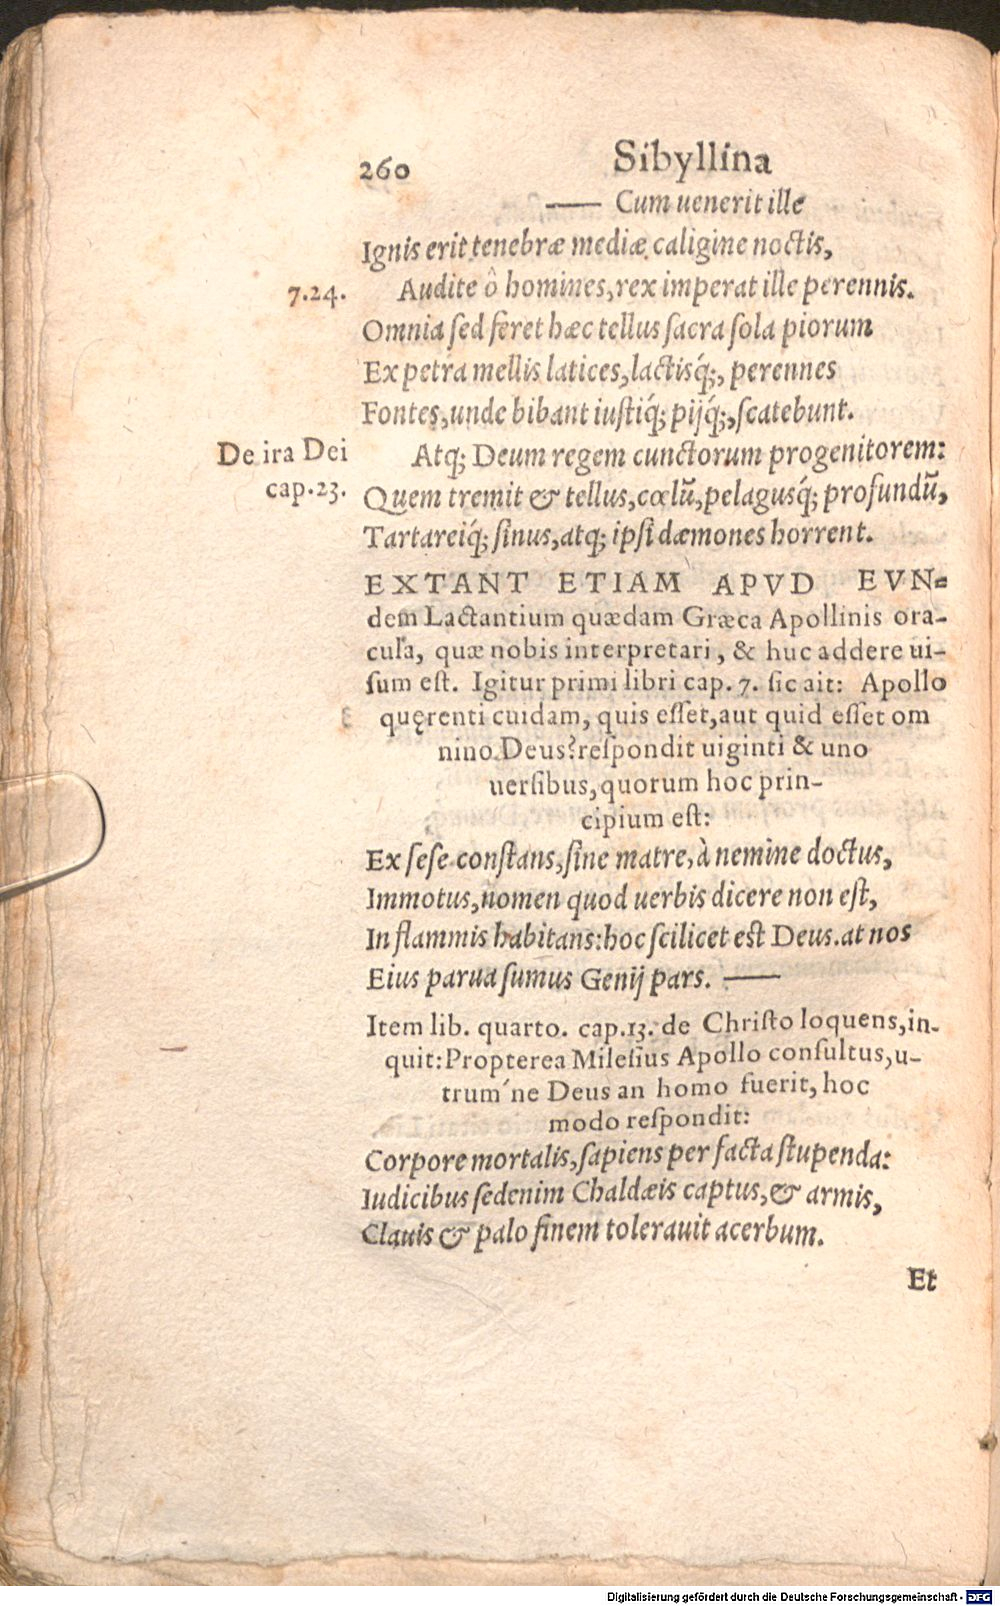 260 Sibyllina
—— Cum uenerit ille
Ignis erit tenebræ mediæ caligine noctis,
7.24. Audite ô homines, rex imperat ille perennis.
Omnia sed feret hæc tellus sacra sola piorum
Ex petra mellis latices, lactisq́;, perennes
Fontes, unde bibant iustiq́; pijq́;, scatebunt.
De ira Dei Atq; Deum regem cunctorum progenitorem:
cap.23. Quem tremit & tellus, cœlũ, pelagusq́; profundũ,
Tartareiq́; sinus, atq; ipsi dæmones horrent.
EXTANT ETIAM APVD EVN-
dem Lactantium quædam Græca Apollinis ora-
cula, quæ nobis interpretari, & huc addere ui-
sum est. Igitur primi libri cap. 7. sic ait: Apollo
quęrenti cuidam, quis esset, aut quid esset om
nino Deus? respondit uiginti & uno
uersibus, quorum hoc prin-
cipium est:
Ex sese constans, sine matre, à nemine doctus,
Immotus, nomen quod uerbis dicere non est,
In flammis habitans: hoc scilicet est Deus. at nos
Eius parua sumus Genij pars. ——
Item lib. quarto. cap.13. de Christo loquens, in-
quit: Propterea Milesius Apollo consultus, u-
trum´ne Deus an homo fuerit, hoc
modo respondit:
Corpore mortalis, sapiens per facta stupenda:
Iudicibus sedenim Chaldæis captus, & armis,
Clauis & palo finem tolerauit acerbum.
Et
Digitalisierung gefördert durch die Deutsche Forschungsgemeinschaft - DFG